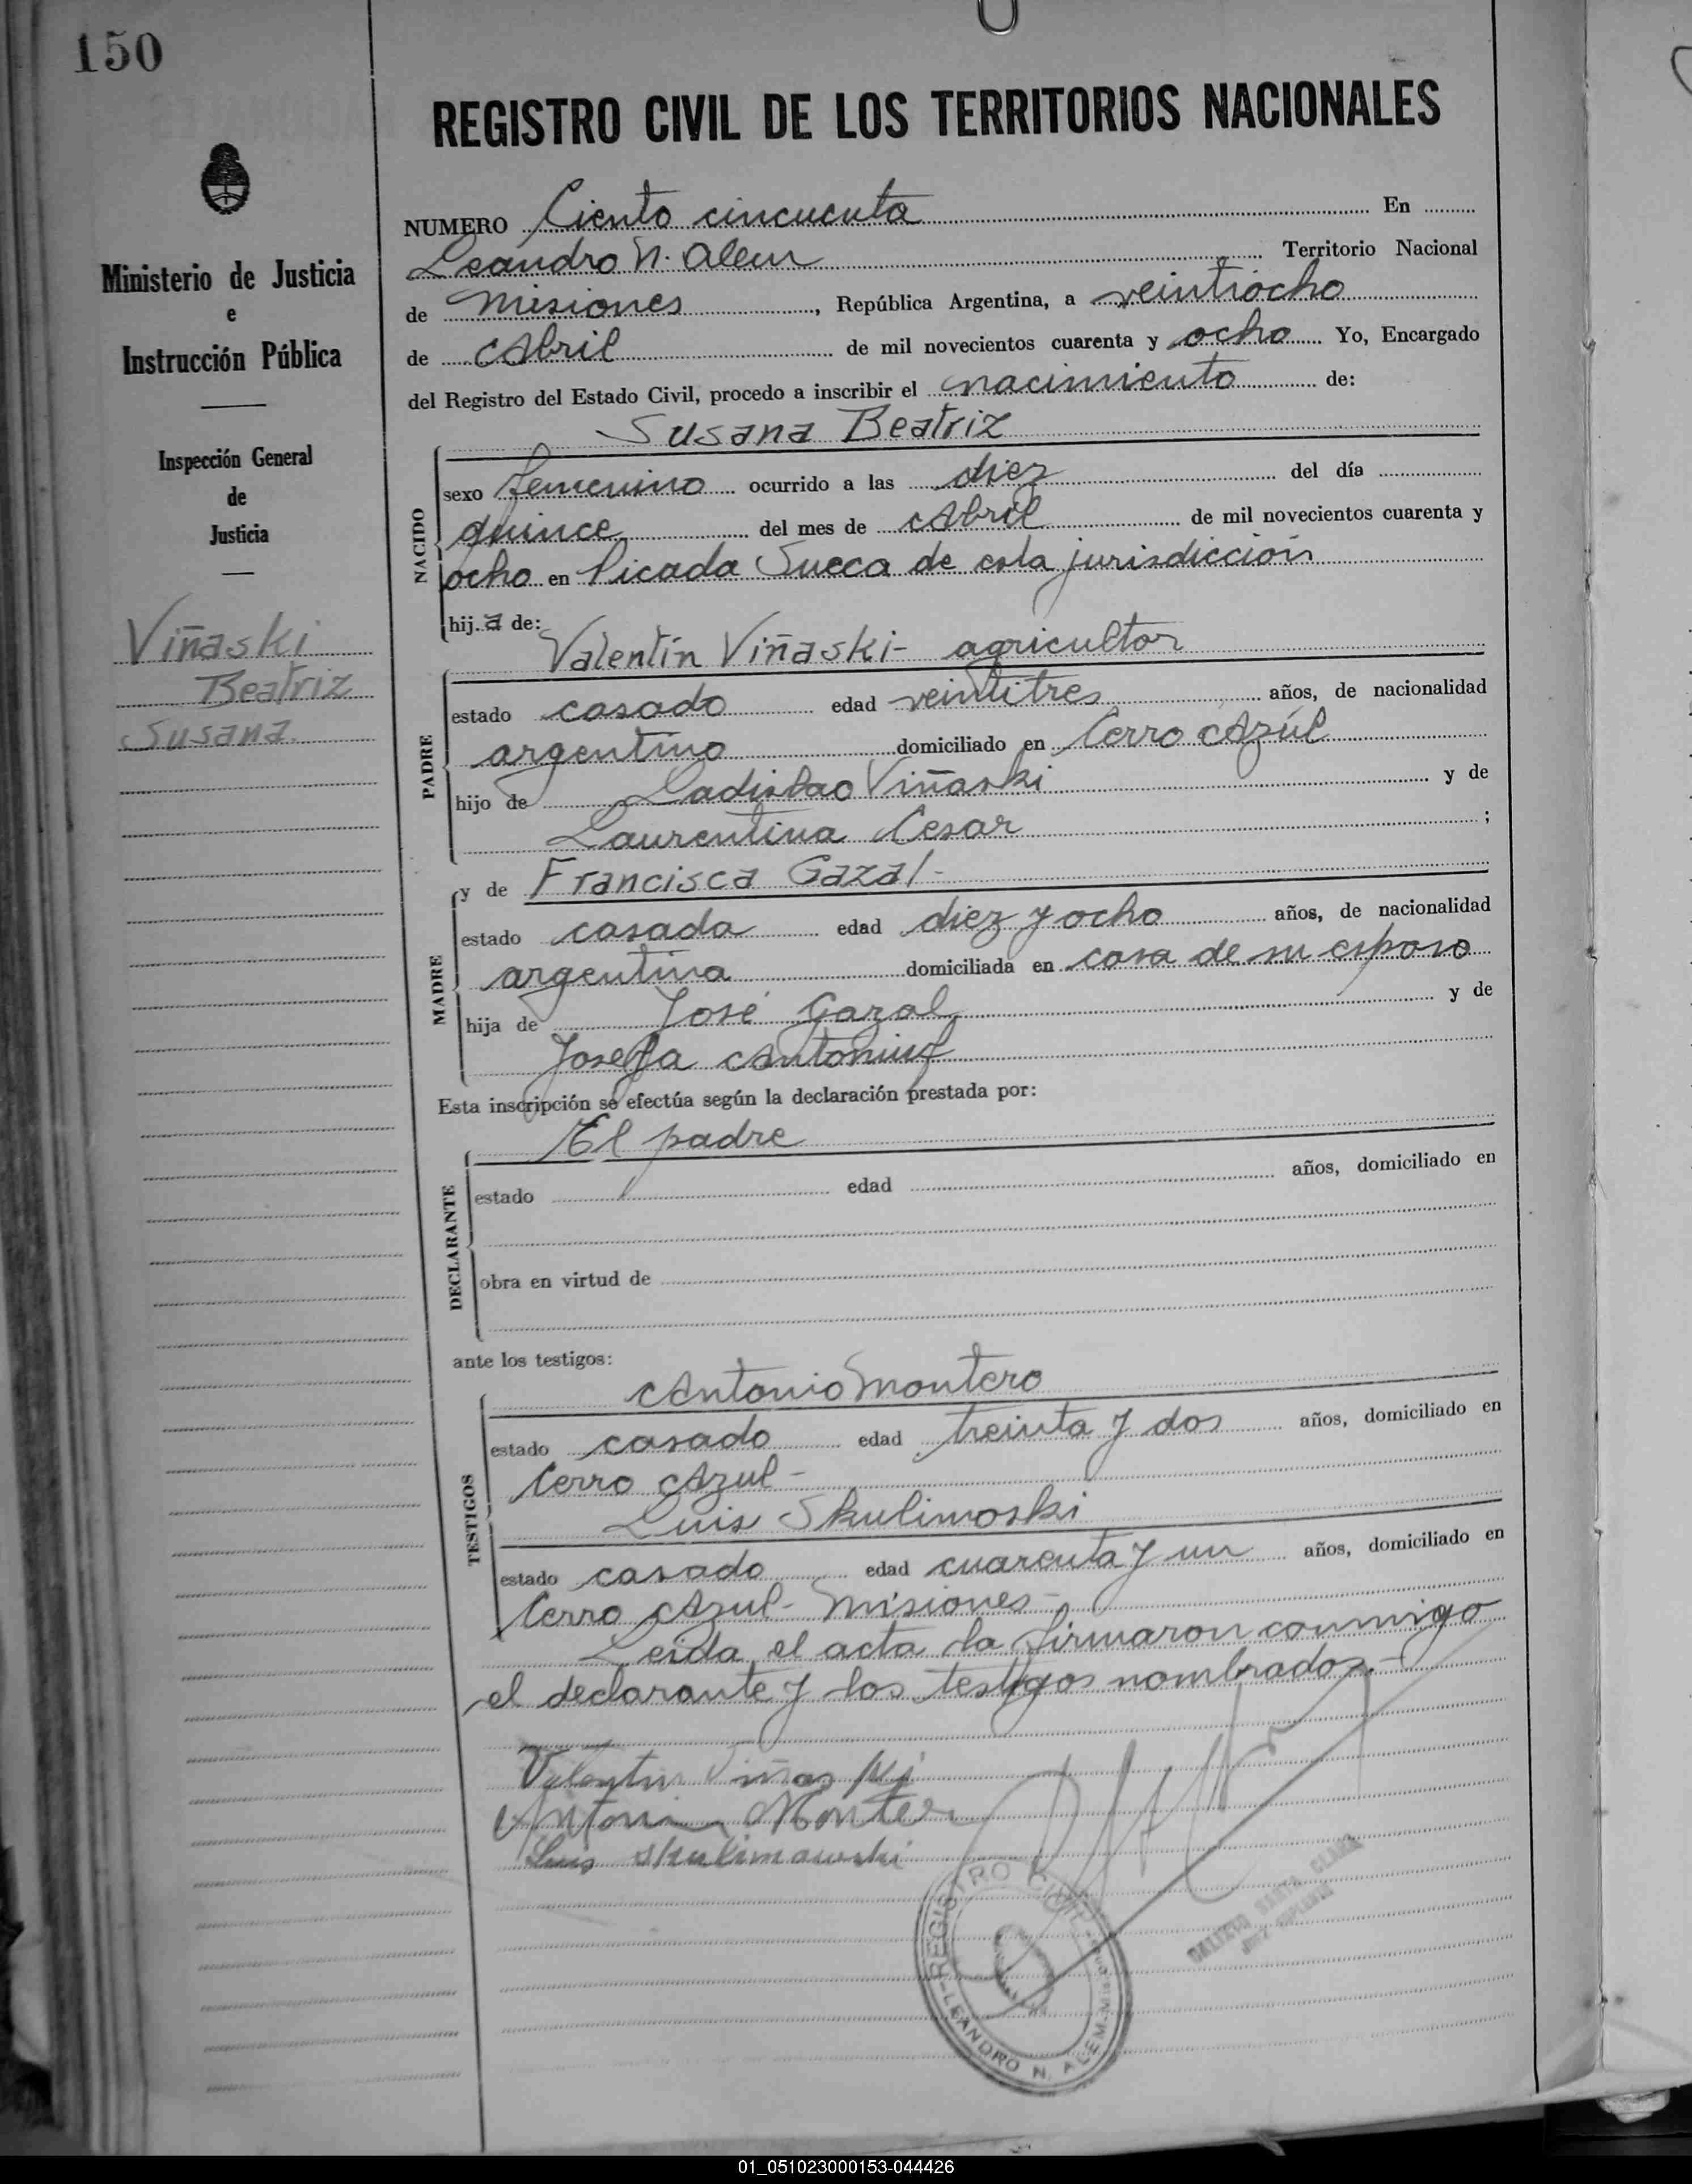 150
REGISTRO CIVIL DE LOS TERRITORIOS NACIONALES
Ministerio de Justicia
e
Instrucción Pública
Inspección General
de
Justicia
Viñaski
Beatriz
Susana.
NUMERO Ciento cincuenta En
Leandro N. Alem Territorio Nacional
de Misiones, República Argentina, a veintiocho
de Abril de mil novecientos cuarenta y ocho Yo, Encargado
del Registro del Estado Civil, procedo a inscribir el nacimiento de:
Susana Beatriz
NACIDO
sexo femenino ocurrido a las diez del día
quince del mes de Abril de mil novecientos cuarenta y
ocho en Picada Sueca de esta jurisdicción
hij.a de:
Valentín Viñaski- agricultor
PADRE
estado casado edad veintitres años, de nacionalidad
argentino domiciliado en Cerro Azúl
hijo de Ladislao Viñaski y de
Laurentina Cesar ;
y de Francisca Gazal-
MADRE
estado casada edad diez y ocho años, de nacionalidad
argentina domiciliada en casa de su esposo
hija de José Gazal y de
Josefa
Esta inscripción se efectúa según la declaración prestada por:
El padre
DECLARANTE
estado edad años, domiciliado en
obra en virtud de
ante los testigos:
Antonio Montero
TESTIGOS
estado casado edad treinta y dos años, domiciliado en
Cerro Azul-
Luis Skulimoski
estado casado edad cuarenta y un años, domiciliado en
Cerro Azul- Misiones-
Leida el acta la firmaron conmigo
el declarante y los testigos nombrados.-
Valentin Viñaski
Antonio Montero
Luis Skulimowski
REGISTRO CIVIL
LEANDRO N. ALEM
SANTA CLARA
JUEZ SUPLENTE
01_051023000153-044426